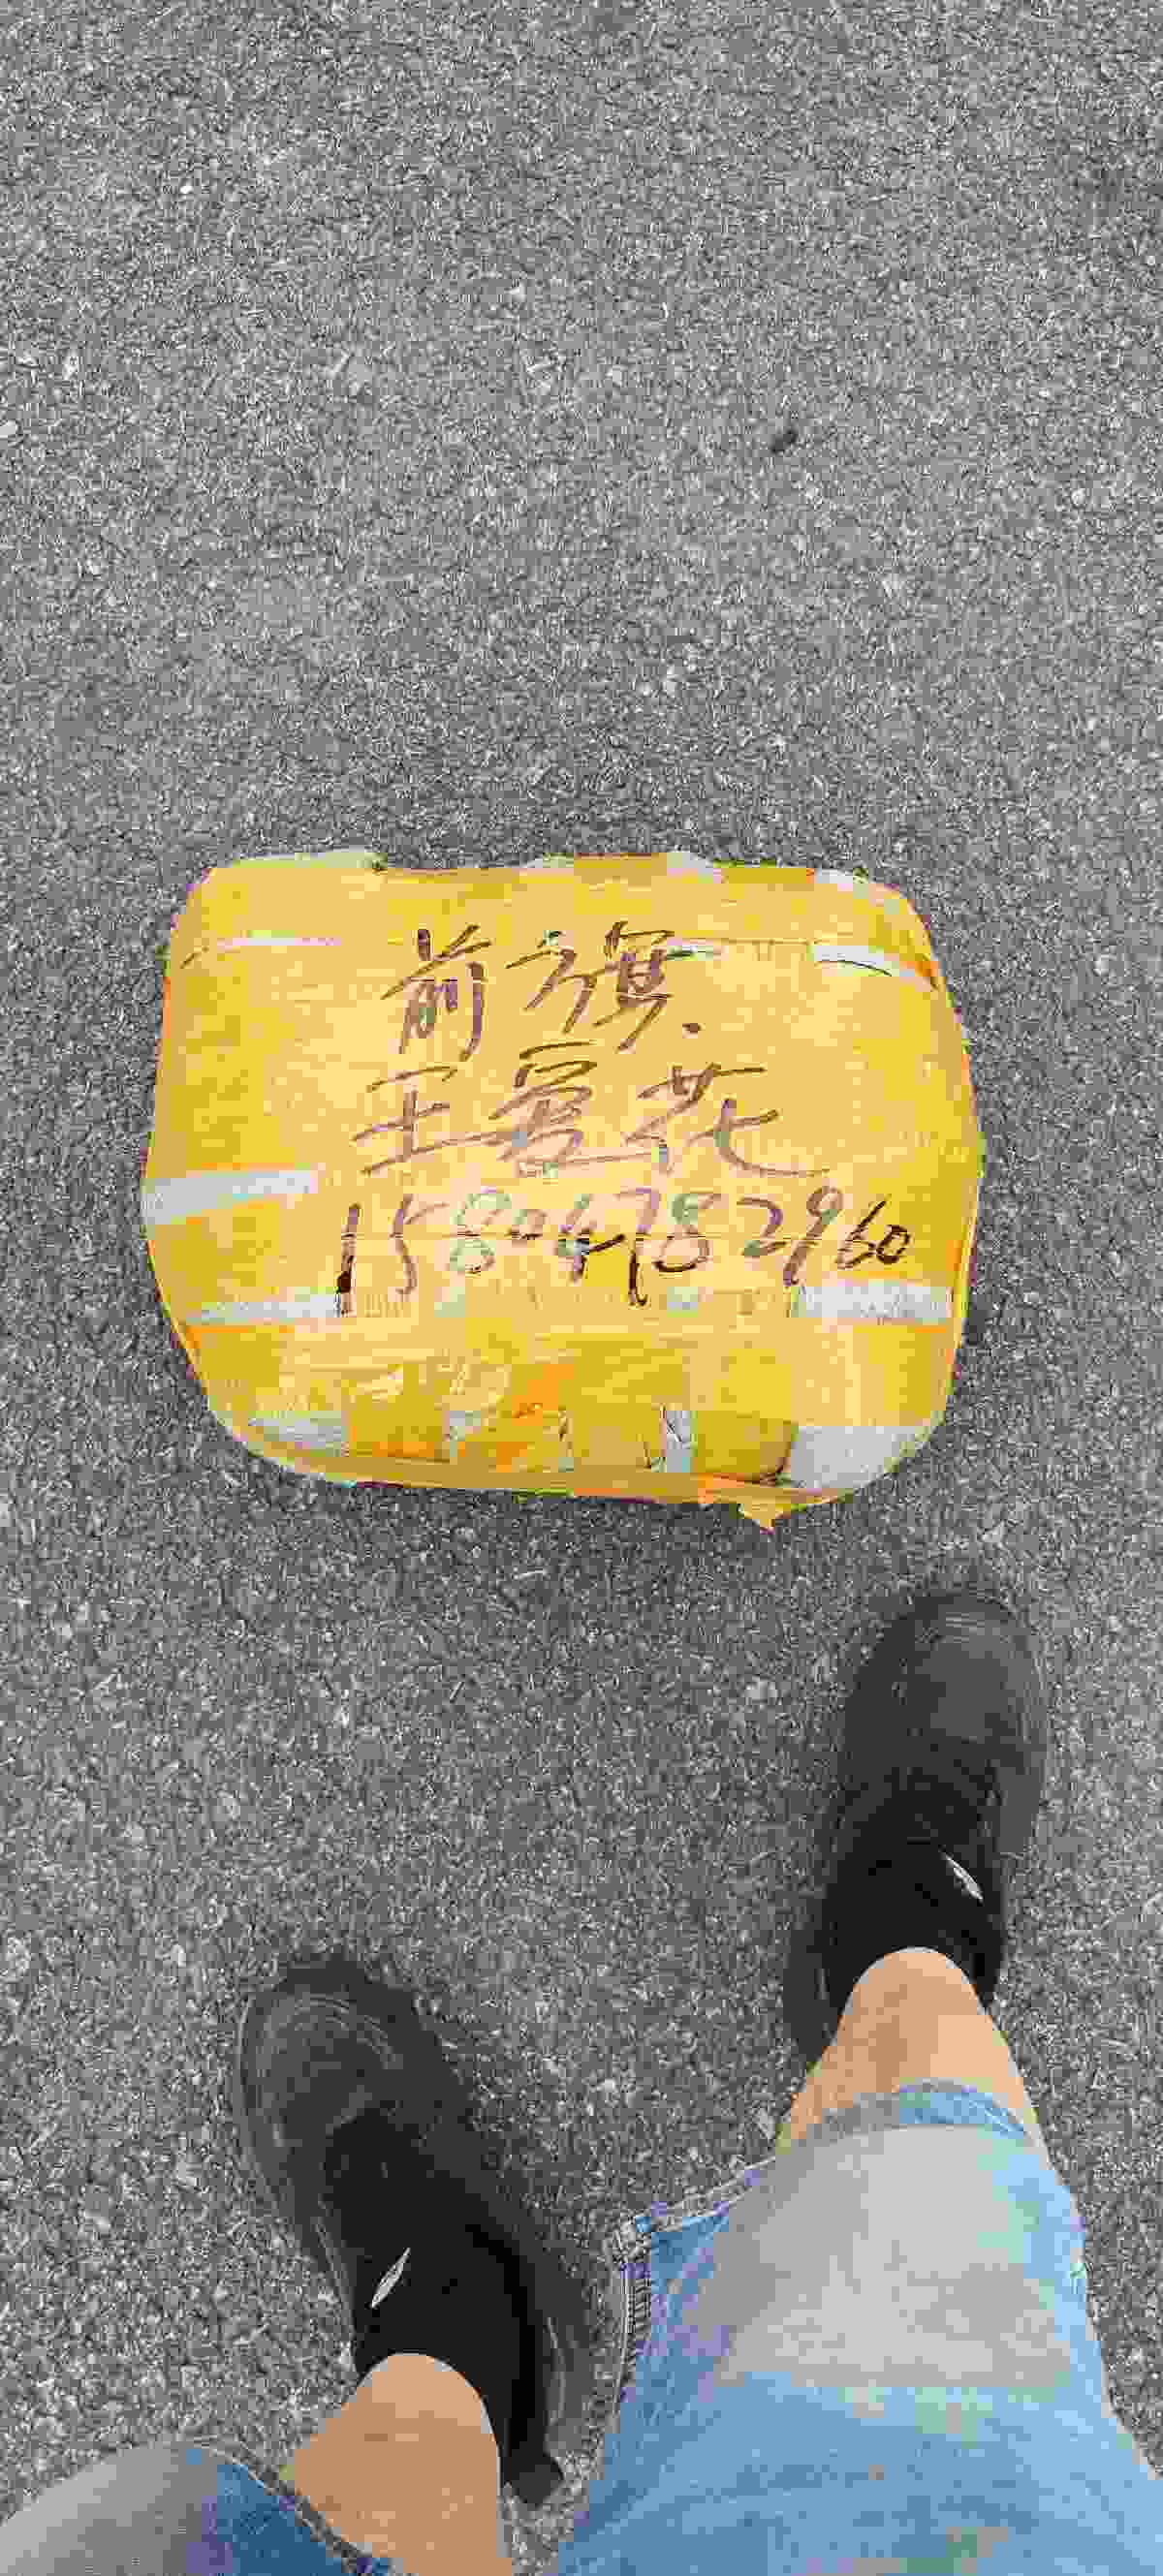 前旗.
王爱花
15804782960